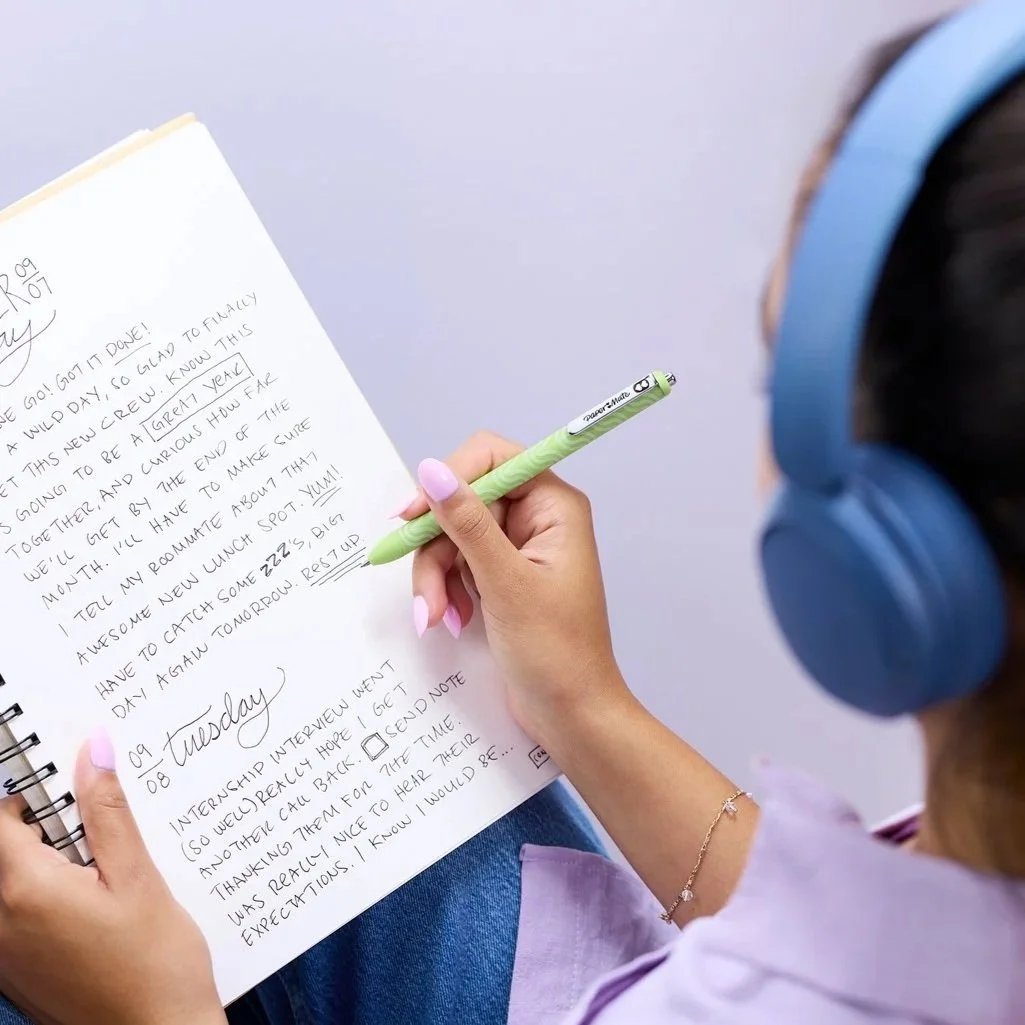 R 09
07
NE GO! GOT IT DONE!
A WILD DAY, SO GLAD TO FINALLY
ET THIS NEW CREW. KNOW THIS
S GOING TO BE A GREAT YEAR
TOGETHER, AND CURIOUS HOW FAR
WE'LL GET BY THE END OF THE
MONTH. I'LL HAVE TO MAKE SURE
I TELL MY ROOMMATE ABOUT THAT
AWESOME NEW LUNCH SPOT. YUM!
HAVE TO CATCH SOME ZZZ'S, BIG
DAY AGAIN TOMORROW. REST UP.
09
08 Tuesday
INTERNSHIP INTERVIEW WENT
(SO WELL) REALLY HOPE I GET
ANOTHER CALL BACK. SEND NOTE
THANKING THEM FOR THE TIME.
WAS REALLY NICE TO HEAR THEIR
EXPECTATIONS. I KNOW I WOULD BE...
Paper Mate